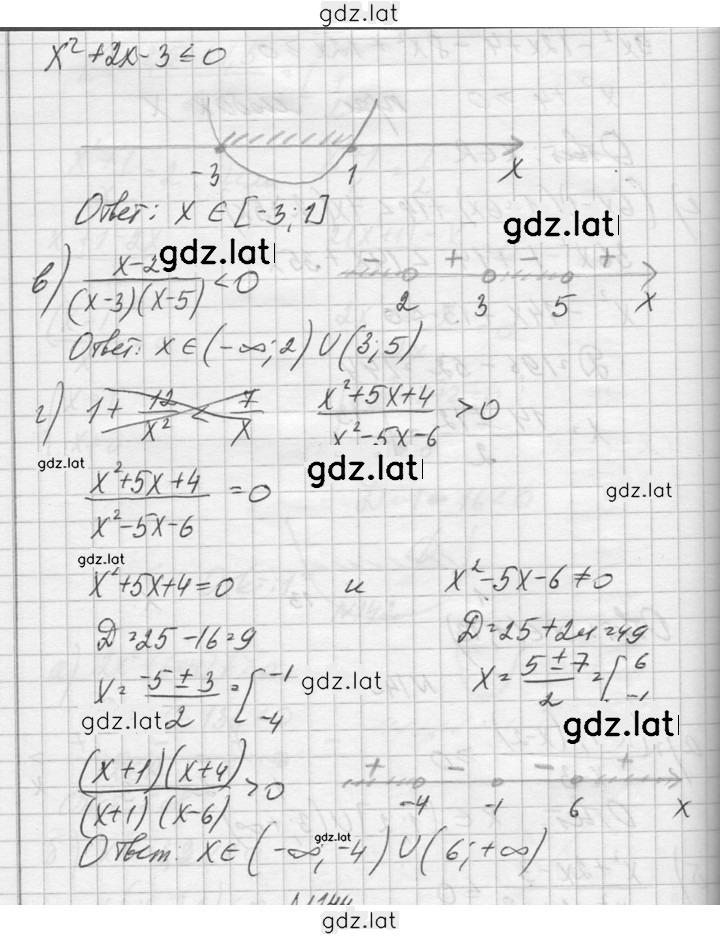 gdz.lat
x²+2x-3≤0
-3 1 x
Ответ: x∈[-3;1]
gdz.lat gdz.lat
в) x-2/(x-3)(x-5)<0 - + - +
2 3 5 x
Ответ: x∈(-∞;2)∪(3;5)
г) 1+12/x²<7/x x²+5x+4/x²-5x-6>0
gdz.lat gdz.lat
x²+5x+4/x²-5x-6=0 gdz.lat
gdz.lat
x²+5x+4=0 и x²-5x-6≠0
Д=25-16=9 Д=25+24=49
x=-5±3/2=[-1 -4 gdz.lat x=5±7/2=[6 -1
gdz.lat gdz.lat
(x+1)(x+4)/(x+1)(x-6)>0 + - - +
-4 -1 6 x
gdz.lat
Ответ: x∈(-∞;-4)∪(6;+∞)
N144
gdz.lat